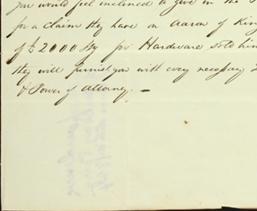 you would feel inclined to give in the
for a claim they have on Aaron of King
of £2000 Stg for Hardware sold him
they will furnish you with every necessary
& Power of Attorney. —